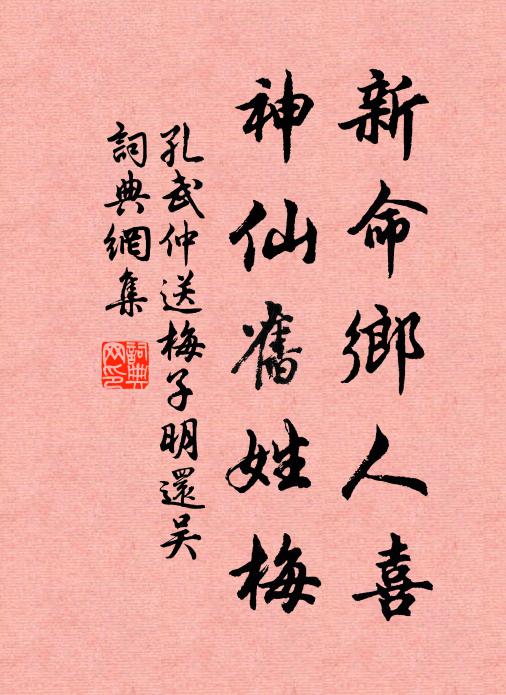 新命鄉人喜
神仙舊姓梅
孔武仲送梅子明還吴
詞典網集
詞典網印